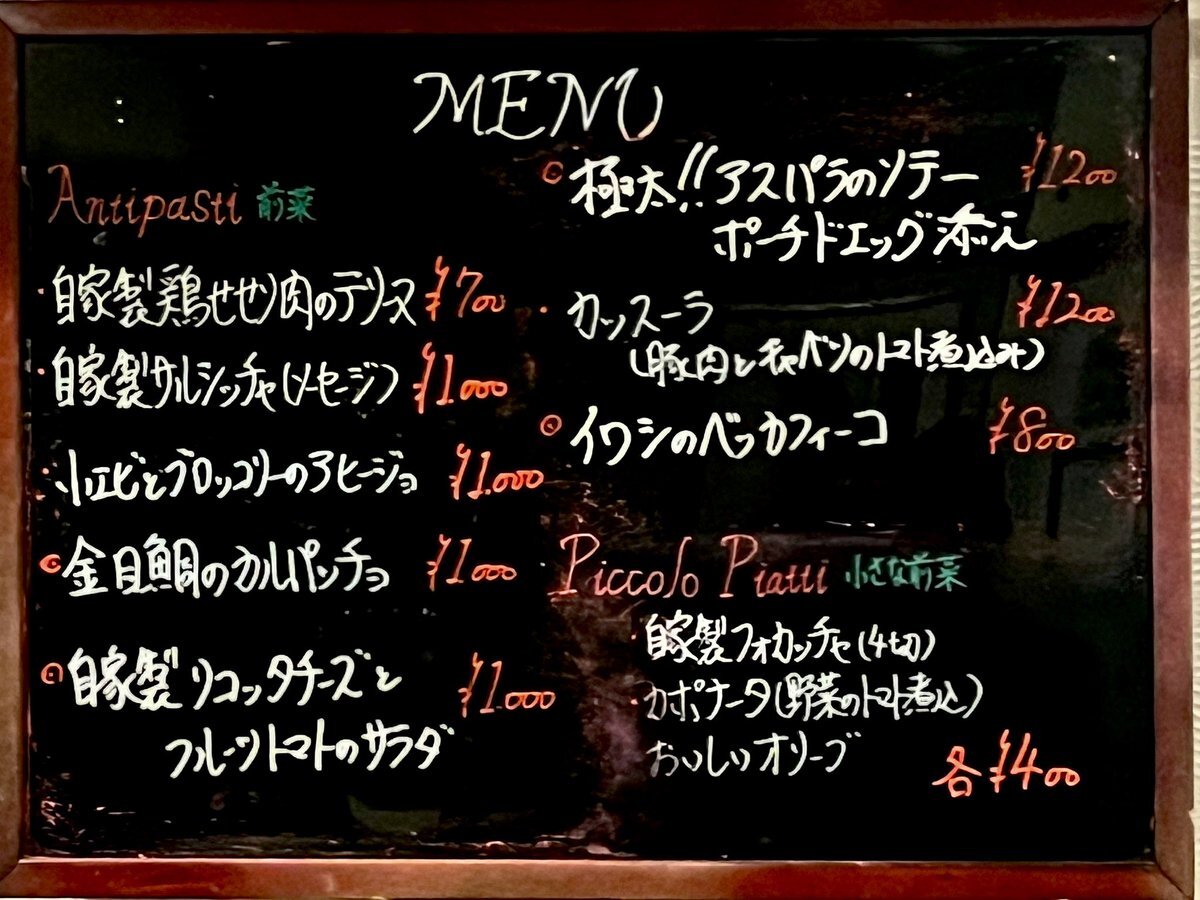 MENU
Antipasti 前菜
・自家製鶏せせり肉のテリーヌ ¥700
・自家製サルシッチャ(ソーセージ) ¥1000
・小エビとブロッコリーのアヒージョ ¥1.000
金目鯛のカルパッチョ ¥1000
自家製リコッタチーズと ¥1.000
フルーツトマトのサラダ
極太!!アスパラのソテー ¥1200
ポーチドエッグ添え
・カッスーラ ¥1200
(豚肉とキャベツのトマト煮込み)
イワシのベッカフィーコ ¥800
Piccolo Piatti 小さな前菜
・自家製フォカッチャ(4切)
・カポナータ(野菜のトマト煮込)
おいしいオリーブ
各¥400